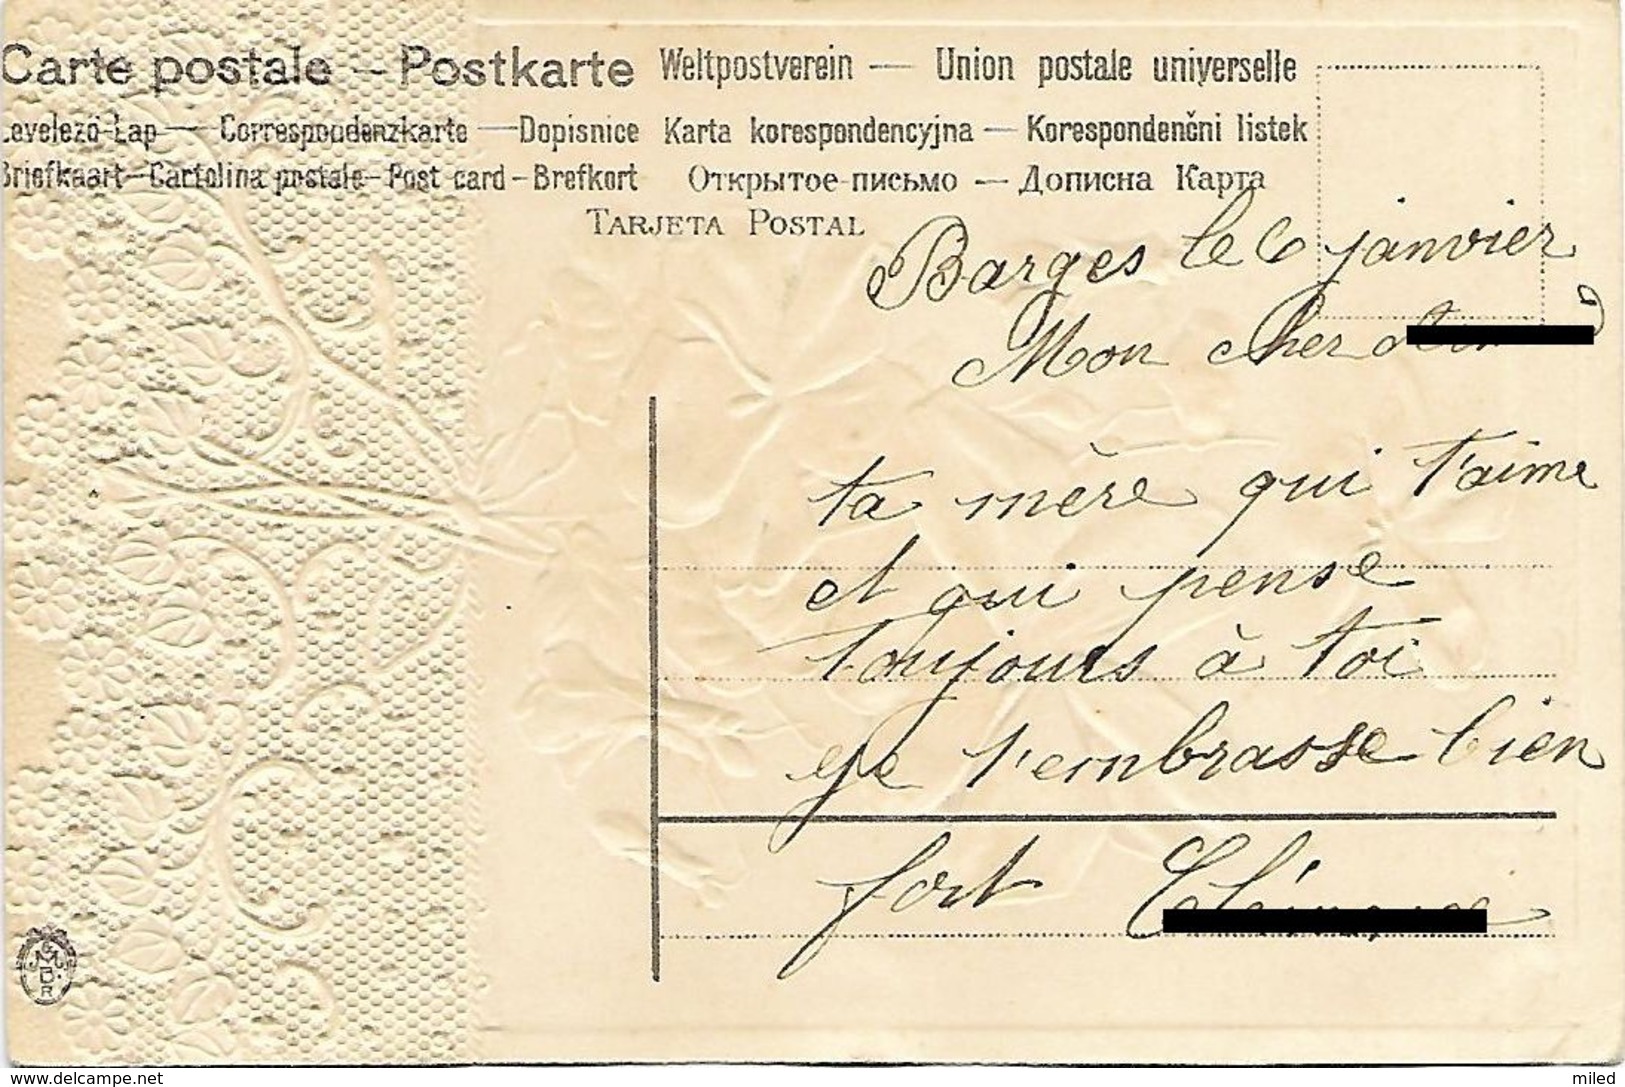 Carte postale — Postkarte Weltpostverein — Union postale universelle
Levelező-Lap — Correspondenzkarte — Dopisnice Karta korespondencyjna — Korespondenčni listek
Briefkaart — Cartolina postale — Post card — Brefkort Открытое письмо — Дописна Карта
TARJETA POSTAL
Barges le 6 janvier
Mon cher
ta mère qui t'aime
et qui pense
toujours à toi
je t'embrasse bien
fort
M
B.
R
delcampe.net
miled